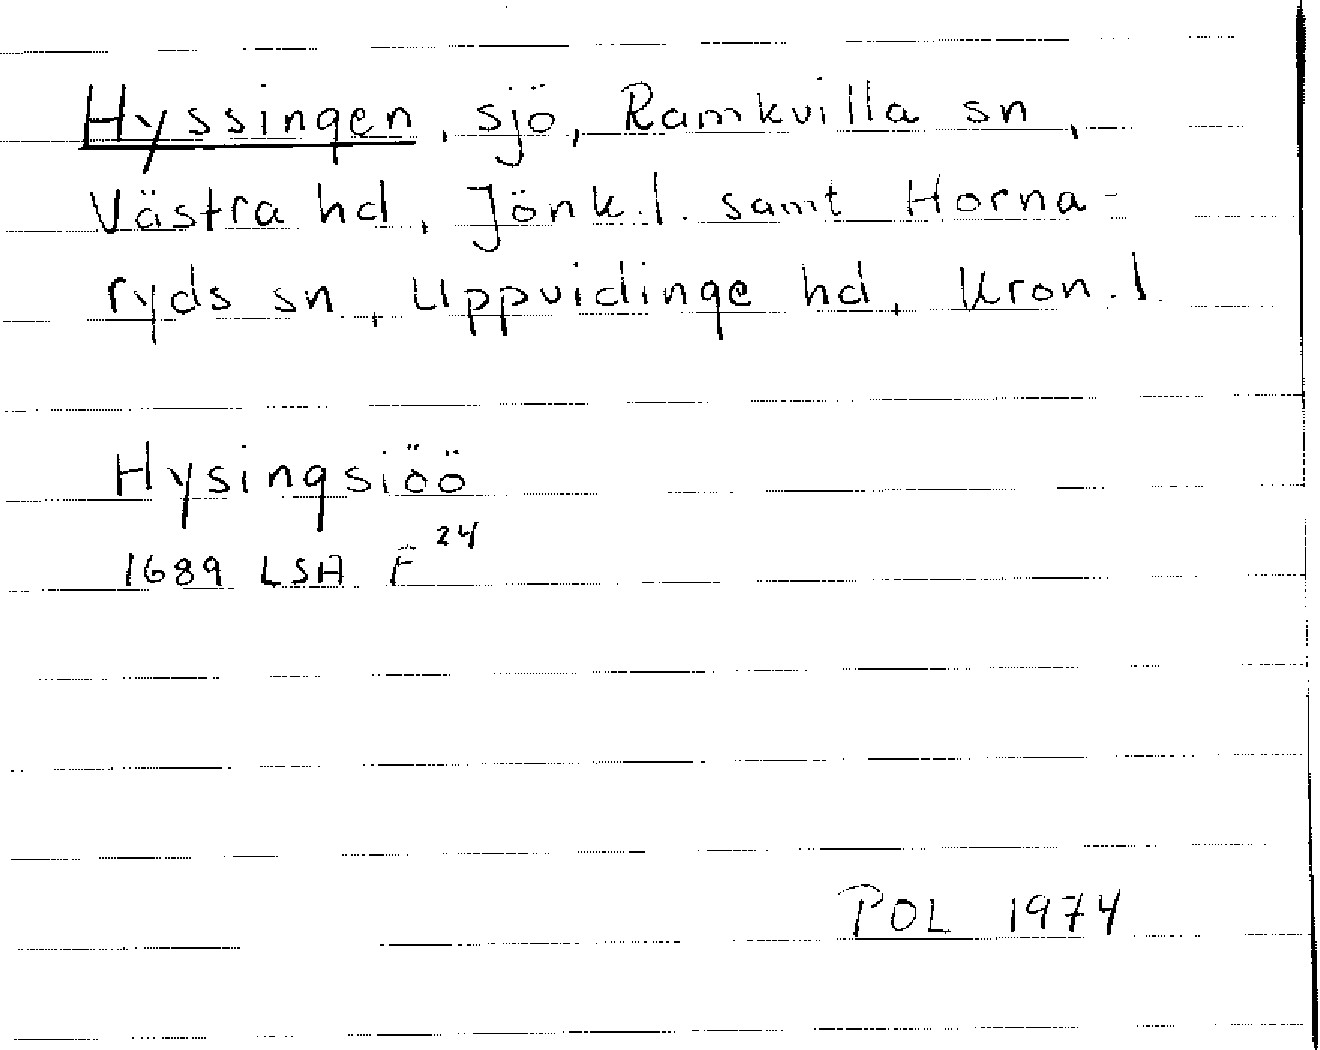 Hyssingen, sjö, Ramkvilla sn,
Västra hd, Jönk.l. samt Horna-
ryds sn, Uppvidinge hd, Kron.l.
Hysingsiöö
1689 LSA F 24
POL 1974